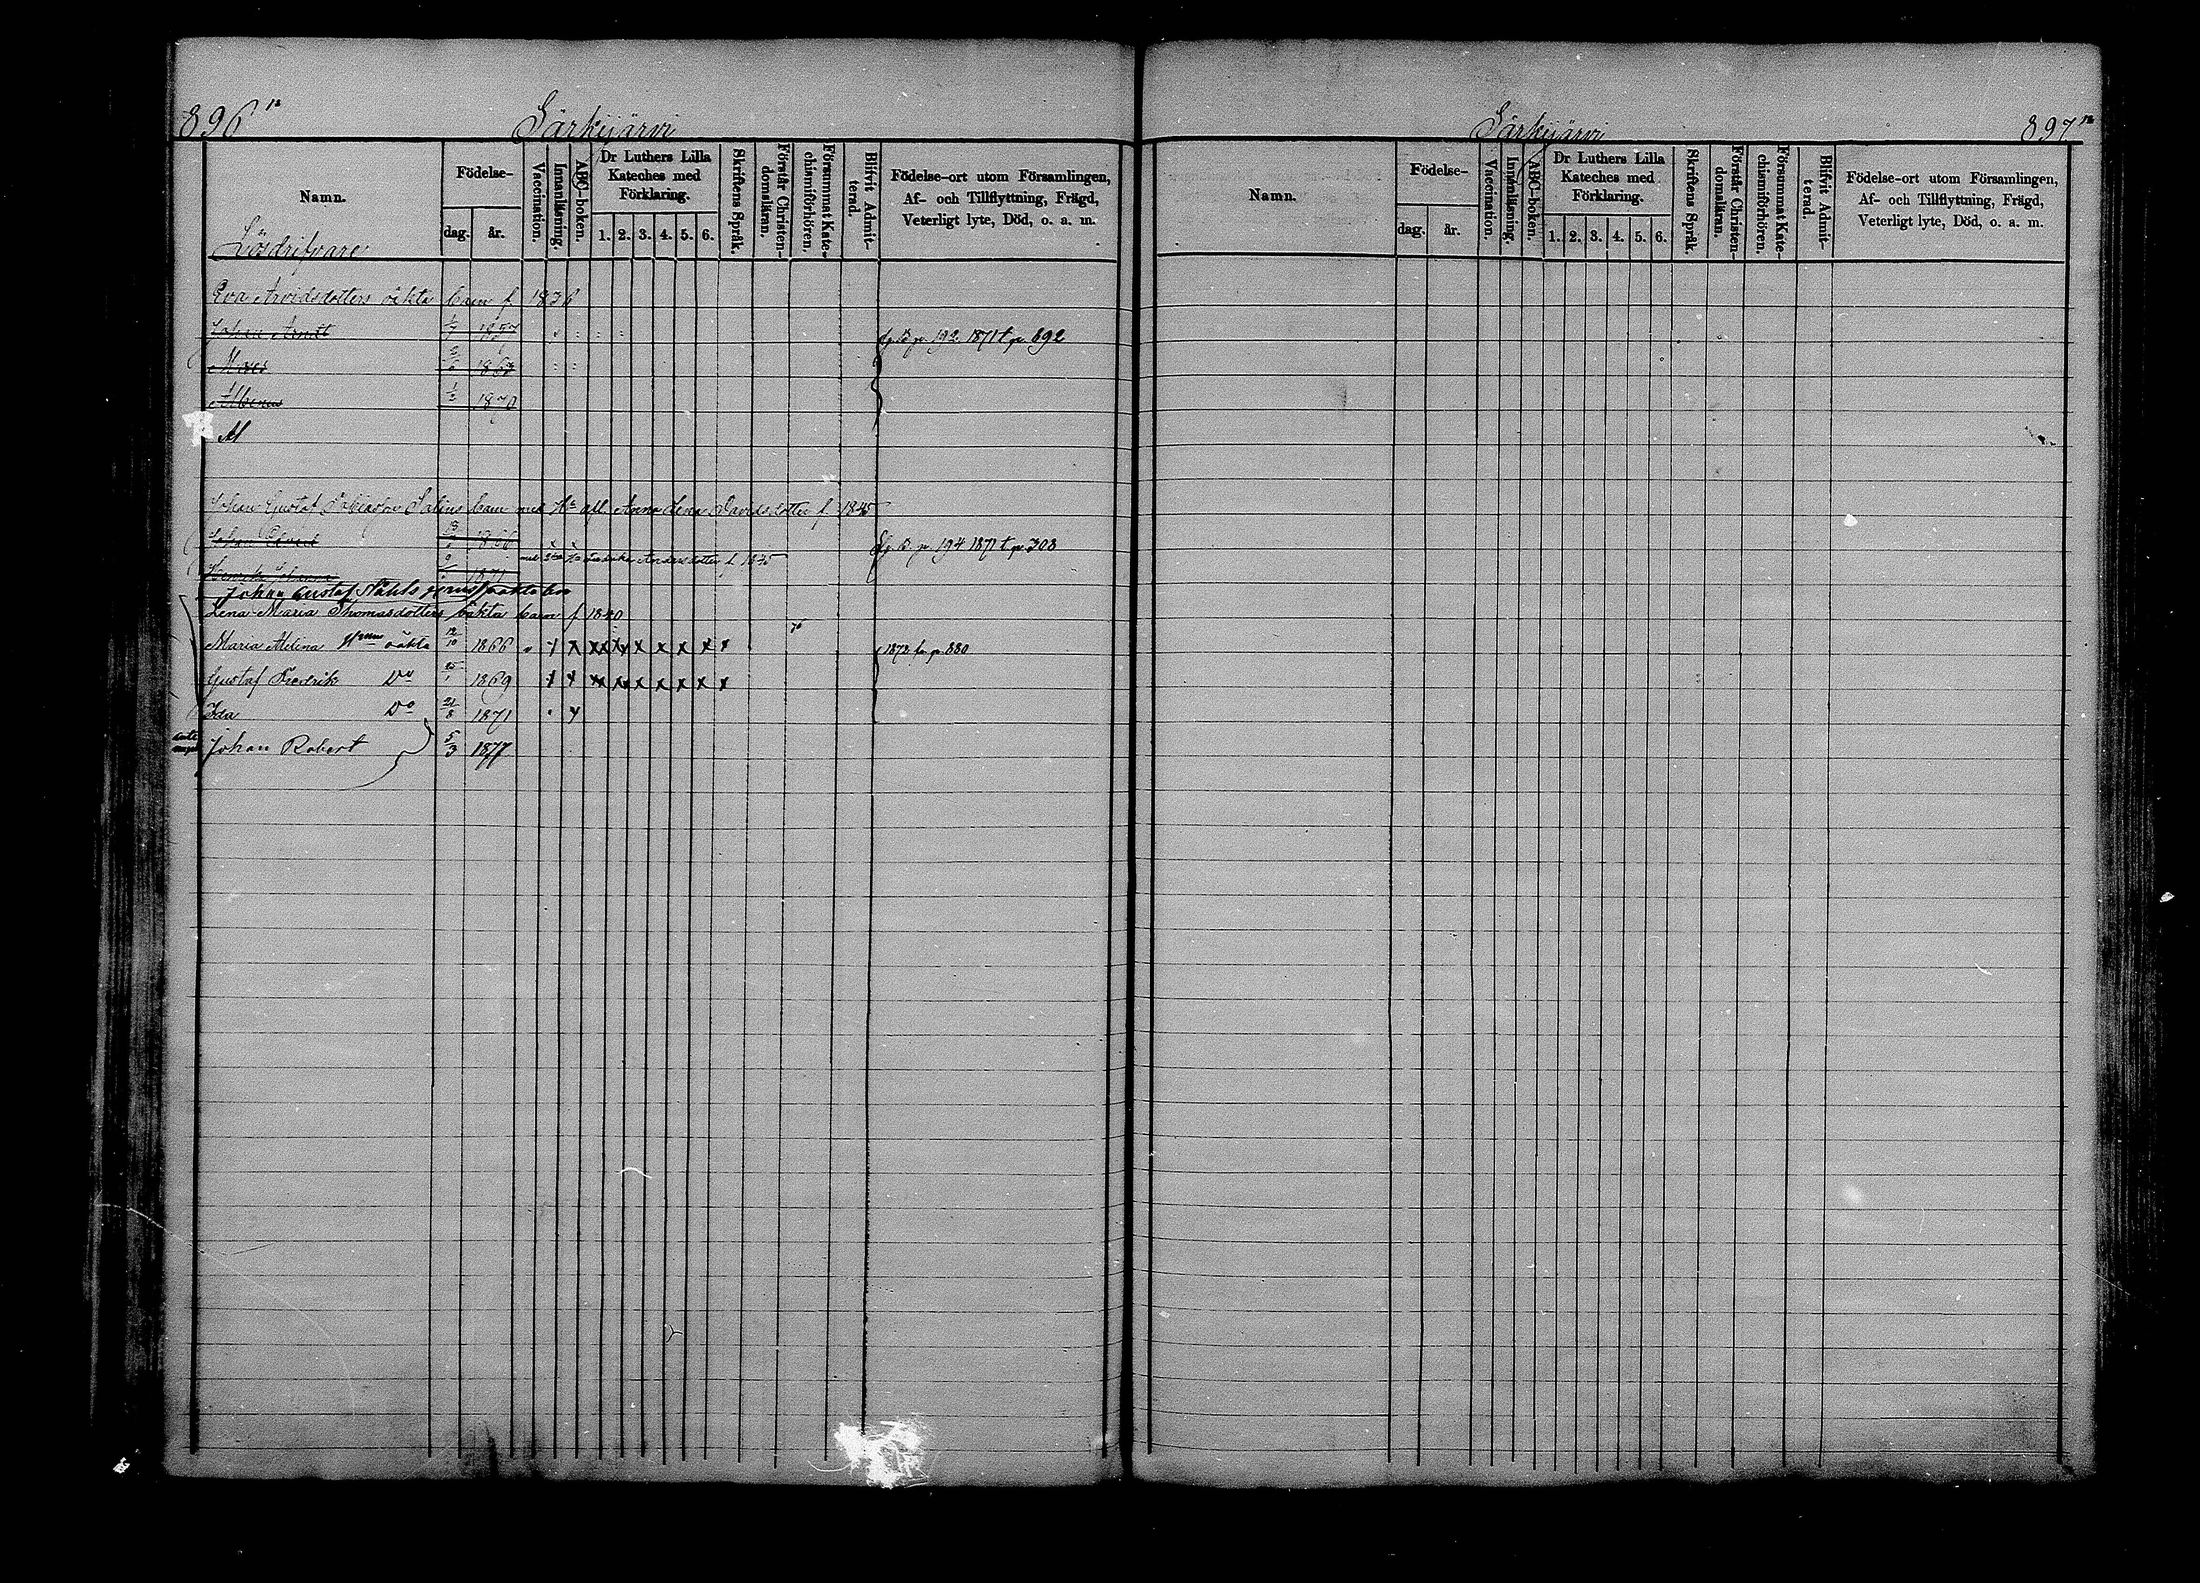 896 12
Särkijärvi
Namn.
Födelse-
dag.
år.
Vaccination.
Innanläsning.
ABC-boken.
Dr Luthers Lilla Kateches med Förklaring.
1. 2. 3. 4. 5. 6.
Skriftens Språk.
Förstår Christen-domsläran.
Försummat Kate-chismiförhören.
Blifvit Admit-terad.
Födelse-ort utom Församlingen, Af- och Tillflyttning, Frägd, Veterligt lyte, Död, o. a. m.
Lösdrifvare
Eva Arvidsdotters oäkta barn f. 1836
Johan 1857 192 1871 t. p. 892
Moses 1863
Albinus 1/2 1870
Al
Johan Gustaf Salins barn med Hu afl. Anna Lena Davidsdotter f. 1845
Johan Edvard 1866 p. 194 1871 t. p. 303
med Andersdotter f. 1835
Henrik Johan 1871
Johan Gustaf
Lena Maria Thomasdotters oäkta barn f. 1840
Maria Melina oäkta 12/10 1866 x x x x x x x x x 1872 p. 880
Gustaf Fredrik Do 25/1 1869 x x x x x x x x x
Ida Do 21/8 1871
Johan Robert 5/3 1877
Särkijärvi
897 12
Namn.
Födelse-
dag.
år.
Vaccination.
Innanläsning.
ABC-boken.
Dr Luthers Lilla Kateches med Förklaring.
1. 2. 3. 4. 5. 6.
Skriftens Språk.
Förstår Christen-domsläran.
Försummat Kate-chismiförhören.
Blifvit Admit-terad.
Födelse-ort utom Församlingen, Af- och Tillflyttning, Frägd, Veterligt lyte, Död, o. a. m.